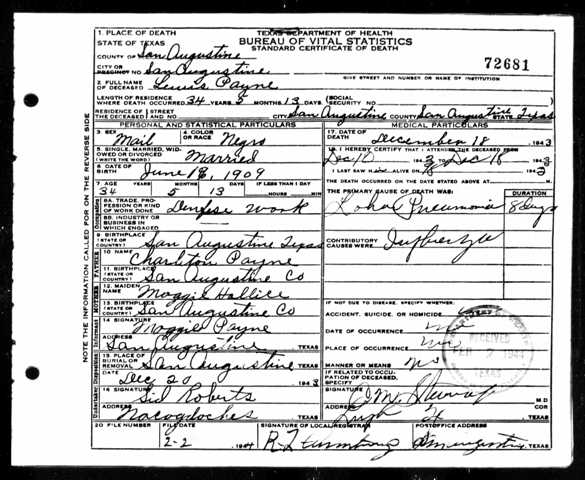 1. PLACE OF DEATH
STATE OF TEXAS
TEXAS DEPARTMENT OF HEALTH
BUREAU OF VITAL STATISTICS
STANDARD CERTIFICATE OF DEATH
72681
COUNTY OF San Augustine
CITY OR PRECINCT NO. San Augustine
GIVE STREET AND NUMBER OR NAME OF INSTITUTION
2. FULL NAME OF DECEASED Lewis Payne
LENGTH OF RESIDENCE WHERE DEATH OCCURRED 34 YEARS 5 MONTHS 13 DAYS (SOCIAL SECURITY NO.
RESIDENCE OF THE DECEASED STREET AND NO. CITY San Augustine COUNTY San Augustine STATE Texas
PERSONAL AND STATISTICAL PARTICULARS
3. SEX Mail
4. COLOR OR RACE Negro
5. SINGLE, MARRIED, WIDOWED OR DIVORCED (WRITE THE WORD) Married
6. DATE OF BIRTH June 18, 1909
7. AGE YEARS MONTHS DAYS IF LESS THAN 1 DAY
34 5 13 HOURS MIN
8A. TRADE, PROFESSION OR KIND OF WORK DONE work
8B. INDUSTRY OR BUSINESS IN WHICH ENGAGED
9. BIRTHPLACE (STATE OR COUNTRY) San Augustine Texas
10. NAME Charlton Payne
11. BIRTHPLACE (STATE OR COUNTRY) San Augustine Co
12. MAIDEN NAME Maggie
13. BIRTHPLACE (STATE OR COUNTRY) San Augustine Co
14. SIGNATURE Maggie Payne
ADDRESS San Augustine TEXAS
15. PLACE OF BURIAL OR REMOVAL San Augustine TEXAS
DATE Dec 20 1943
16. SIGNATURE Sid Roberts
ADDRESS Nacogdoches TEXAS
20. FILE NUMBER FILE DATE 2-2 1944
MEDICAL PARTICULARS
17. DATE OF DEATH December 18, 1943
18. I HEREBY CERTIFY THAT I ATTENDED THE DECEASED FROM
Dec 10 1943 TO Dec 18 1943
I LAST SAW ALIVE ON 18 1943
THE DEATH OCCURRED ON THE DATE STATED ABOVE AT M.
THE PRIMARY CAUSE OF DEATH WAS: DURATION
Lobar Pneumonia 8 Days
CONTRIBUTORY CAUSES WERE:
IF NOT DUE TO DISEASE, SPECIFY:
ACCIDENT, SUICIDE, OR HOMICIDE
DATE OF OCCURRENCE
PLACE OF OCCURRENCE
MANNER OR MEANS no
IF RELATED TO OCCUPATION OF DECEASED, SPECIFY
SIGNATURE M.D.
ADDRESS COR
SIGNATURE OF LOCAL REGISTRAR
POSTOFFICE ADDRESS
TEXAS
RECEIVED
FEB 1944
NOTE THE INFORMATION CALLED FOR ON THE REVERSE SIDE